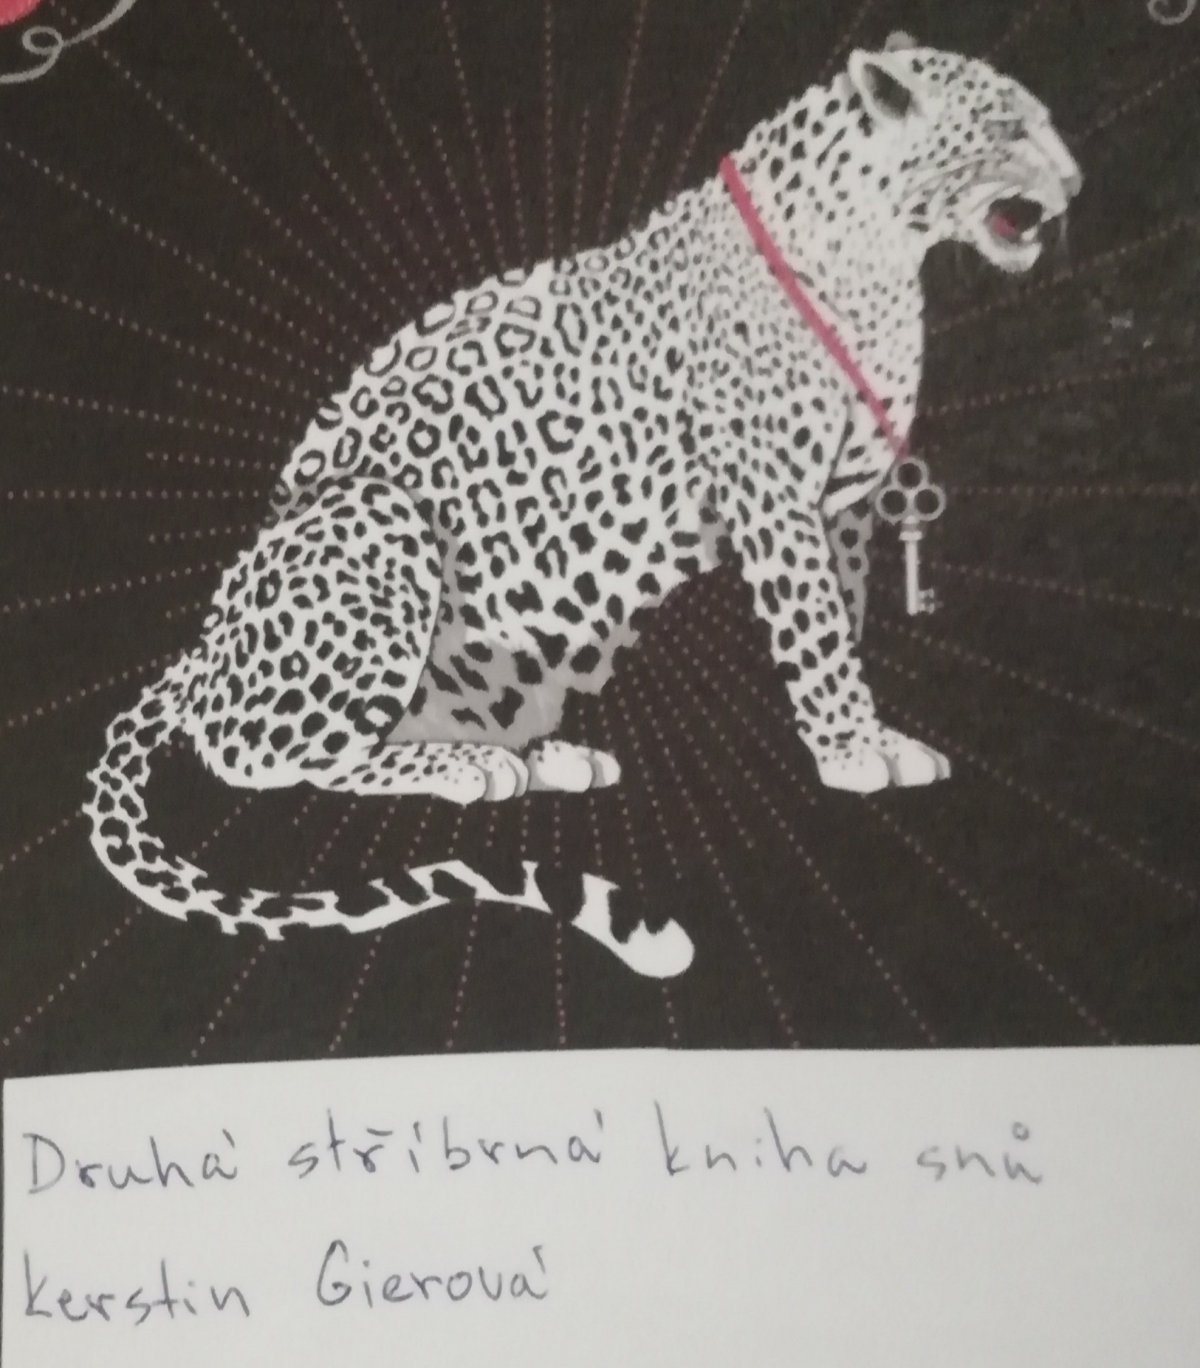 Druhá stříbrná kniha snů
Kerstin Gierová